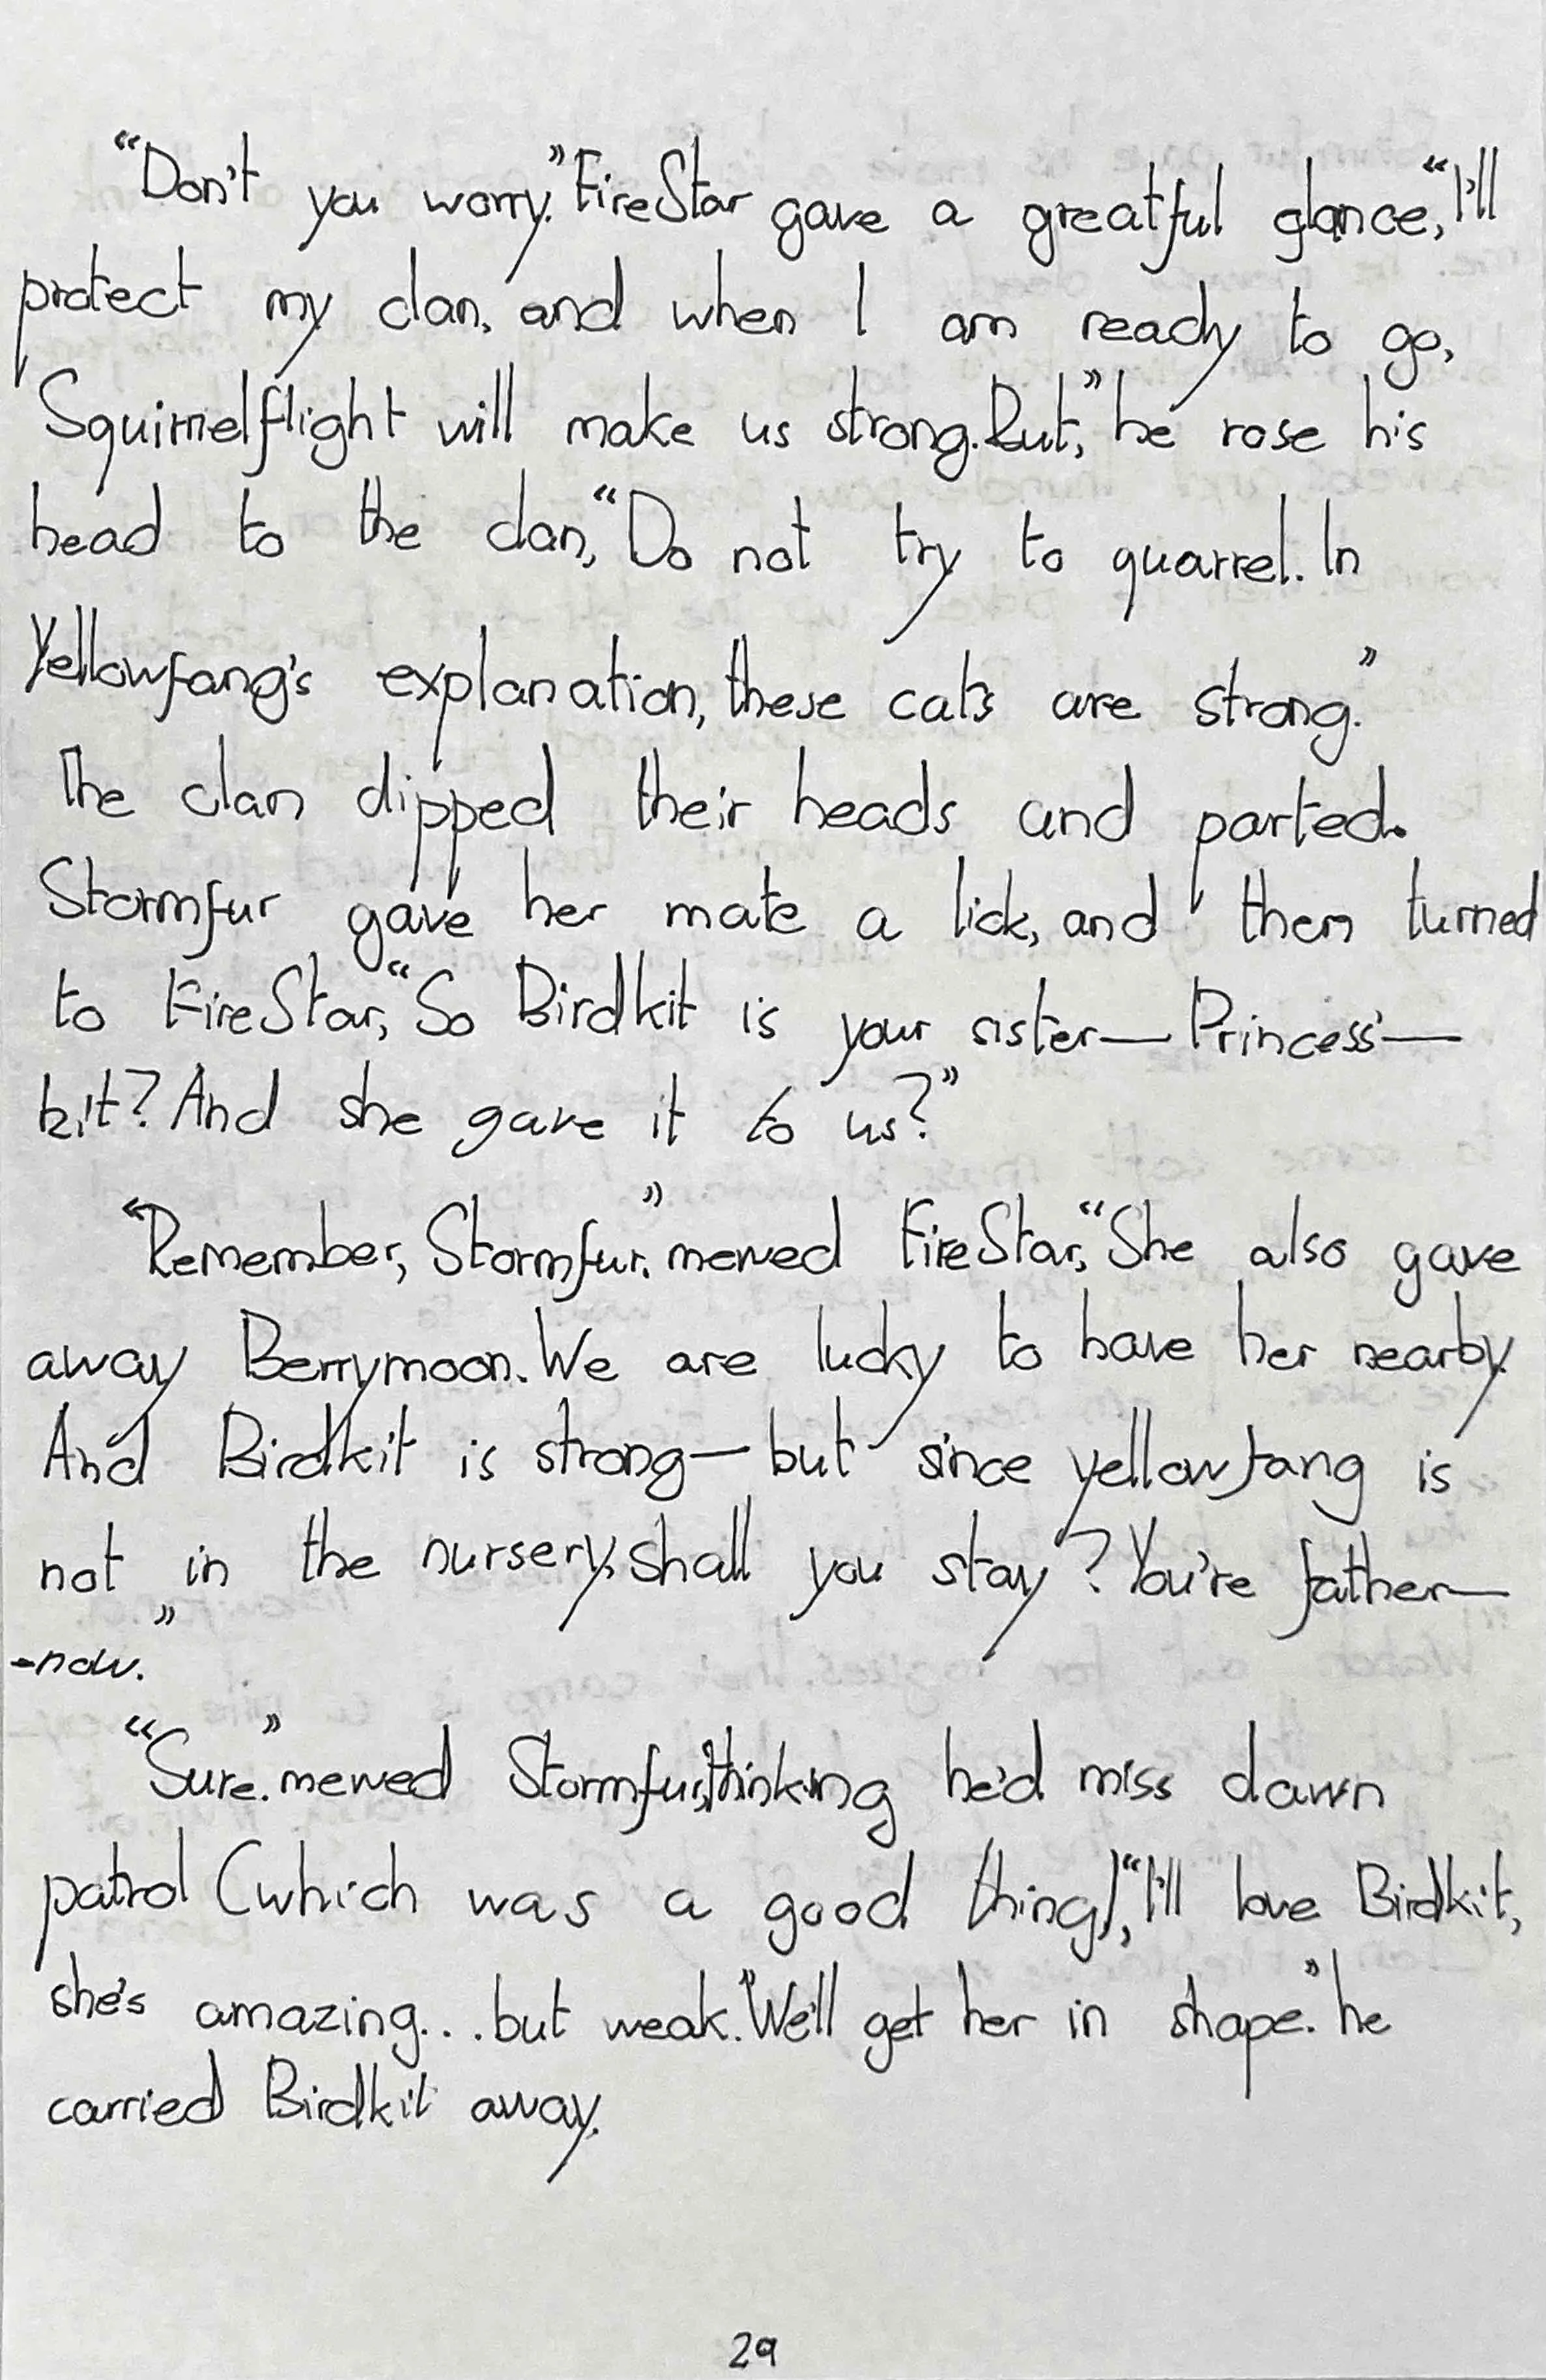 “Don't you worry.” FireStar gave a greatful glance, “I'll
protect my clan, and when I am ready to go,
Squirrelflight will make us strong. But,” he rose his
head to the clan, “Do not try to quarrel. In
Yellowfang's explanation, these cats are strong.”
The clan dipped their heads and parted.
Stormfur gave her mate a lick, and then turned
to FireStar, “So Birdkit is your sister—Princess'—
kit? And she gave it to us?”
“Remember, Stormfur.” mewed FireStar, “She also gave
away Berrymoon. We are lucky to have her nearby.
And Birdkit is strong—but since yellowfang is
not in the nursery, shall you stay? You're father—
-now.”
“Sure.” mewed Stormfur, thinking he'd miss dawn
patrol (which was a good thing), “I'll love Birdkit,
she's amazing... but weak.” We'll get her in shape.” he
carried Birdkit away.
29